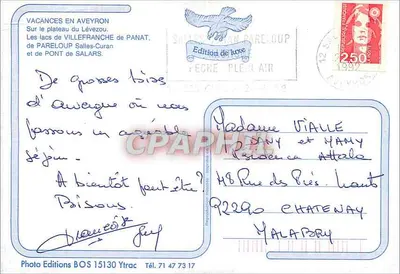 VACANCES EN AVEYRON
Sur le plateau du Lévezou.
Les lacs de VILLEFRANCHE de PANAT,
de PARELOUP Salles-Curan
et de PONT de SALARS.
Edition de luxe
PARELOUP
PECHE PLEIN AIR
2,50
1992
De grosses bises
d'Auvergne où nous
passons un agréable
séjour.
A bientôt peut être?
Bisous.
Françoise Guy
Madame VIALLE
DANY et MAMY
Résidence Attala
48 Rue des Prés-hauts
92290 CHATENAY
MALABRY
CPARAMA
Photo Editions BOS 15130 Ytrac Tél. 71 47 73 17